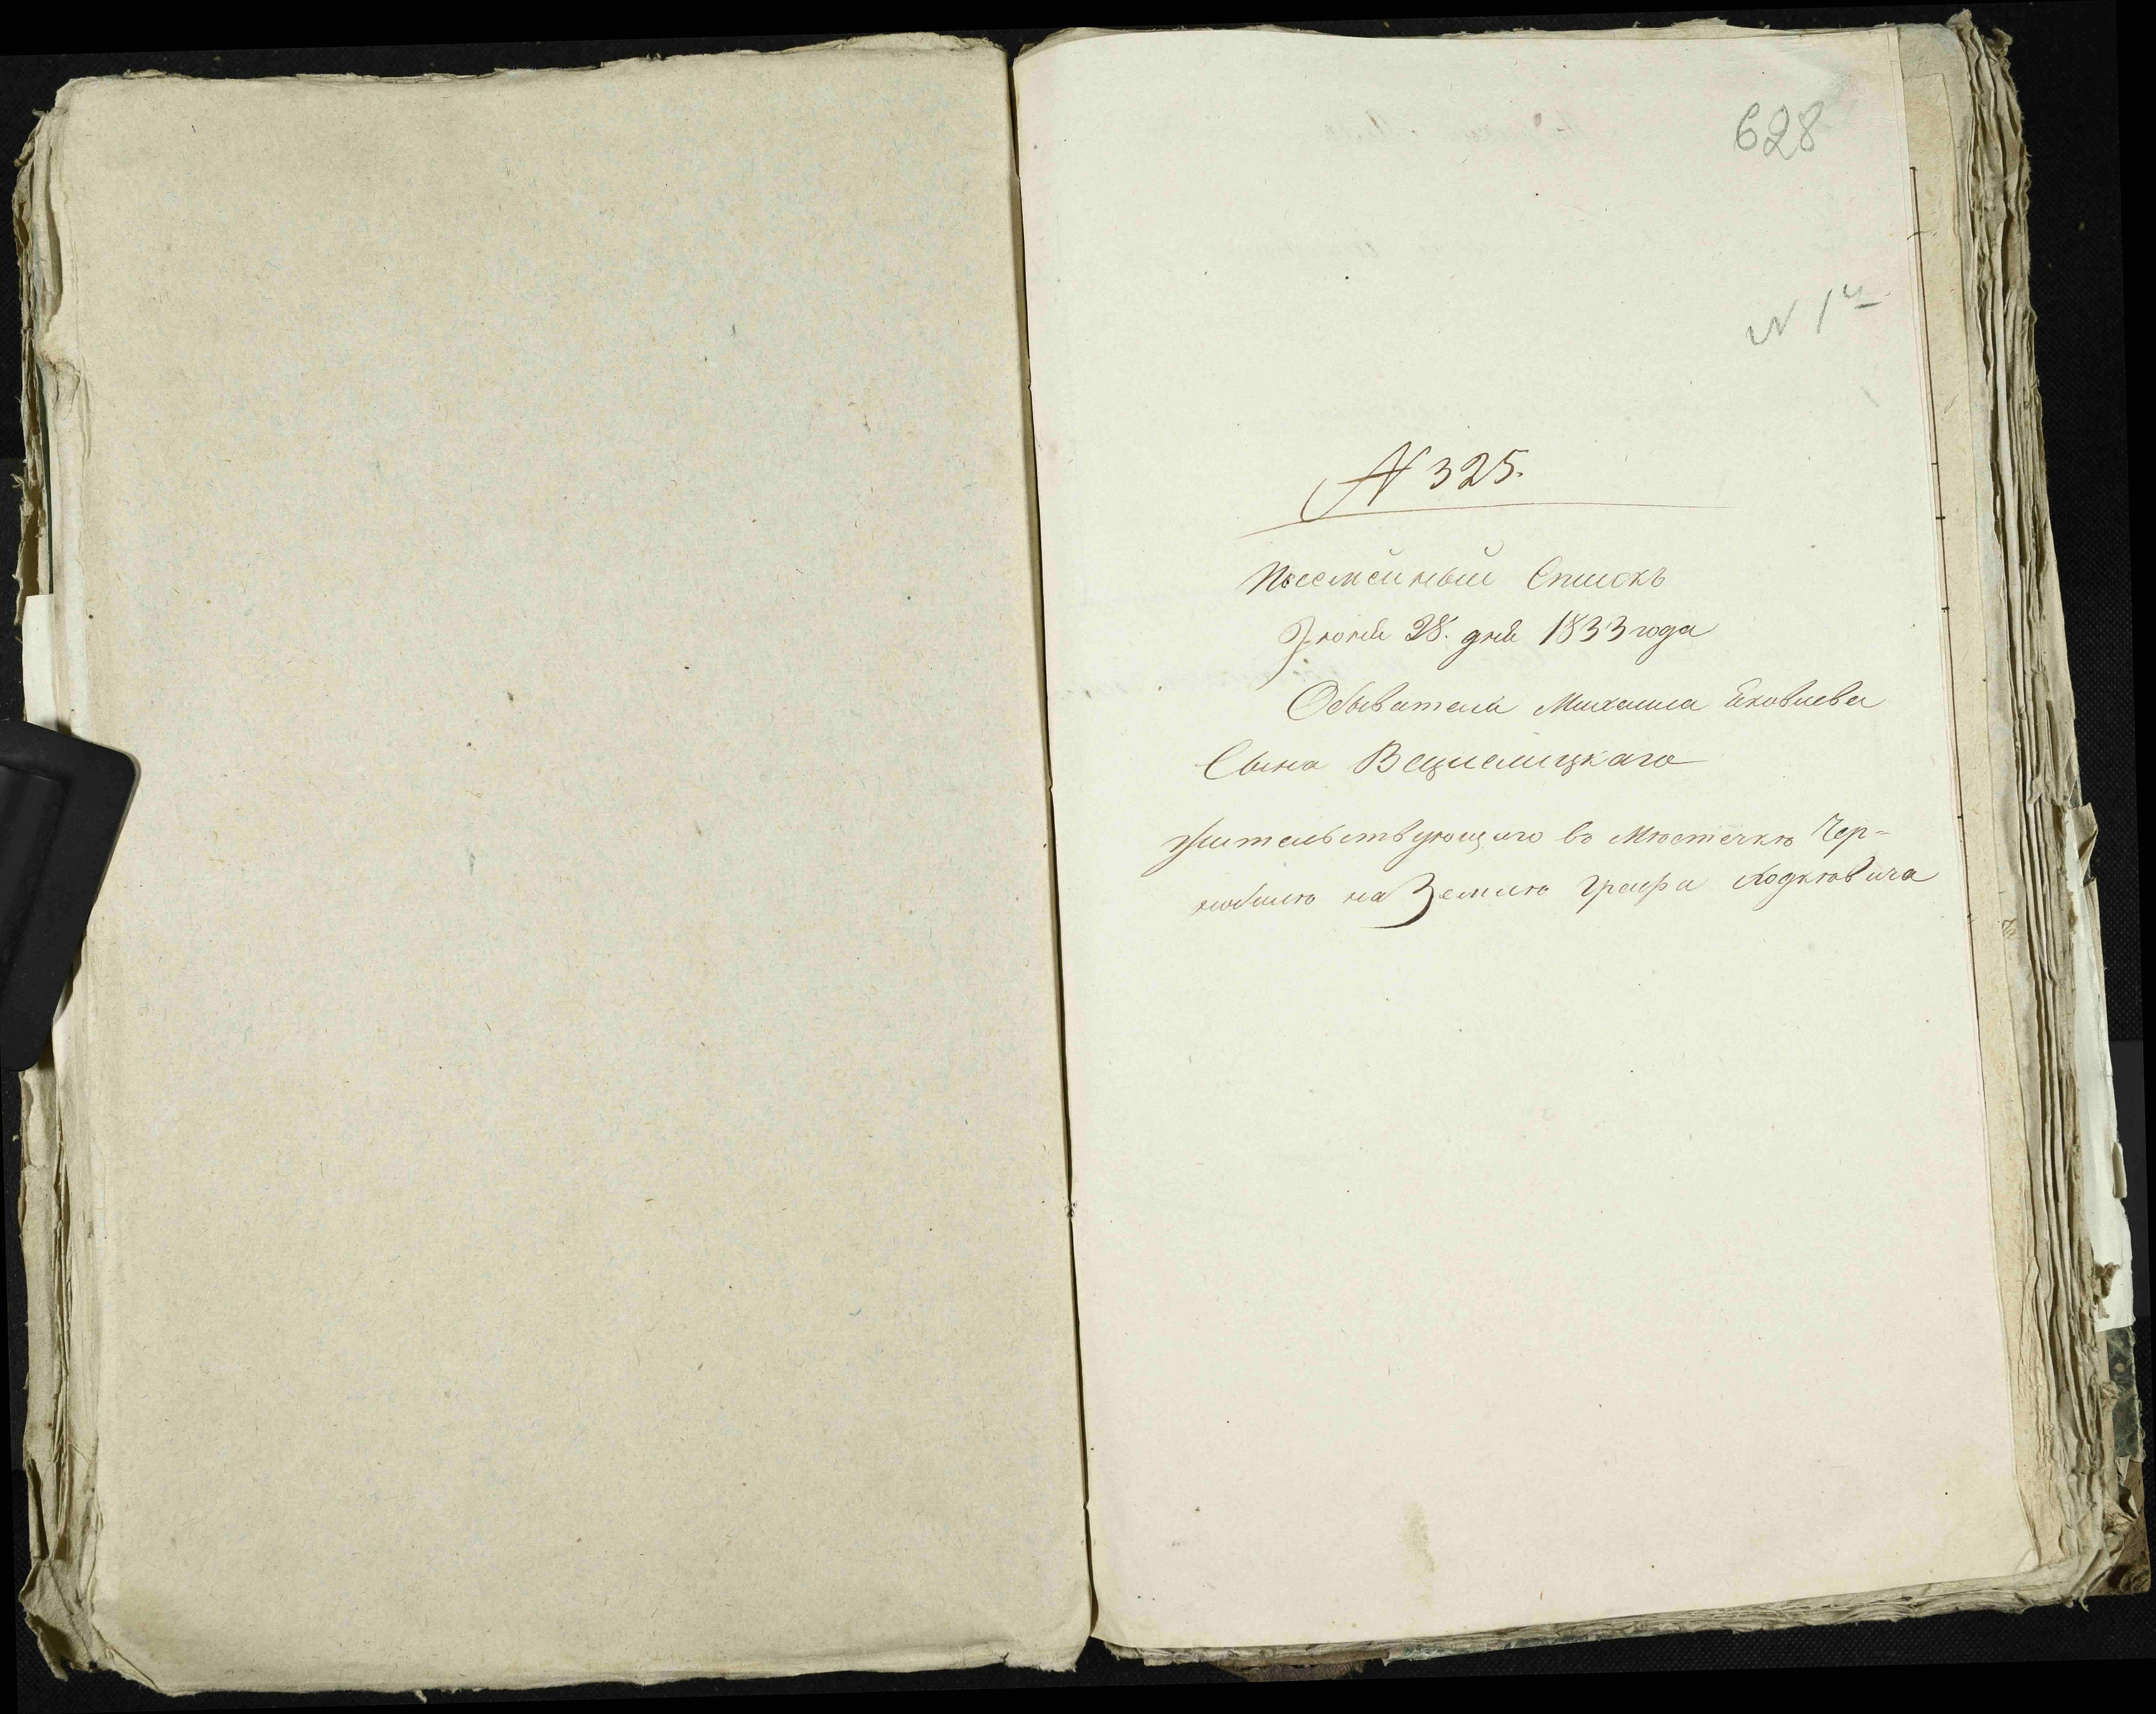 628
N 1й
N 325.
Посемейный Списокъ
Іюня 28. дня 1833 года
Обывателя Михаила Яковлева
Сына Вециелицкаго
Жительствующаго въ Мѣстечкѣ Чер=
нобылѣ на Землѣ Графа Ходкѣвича